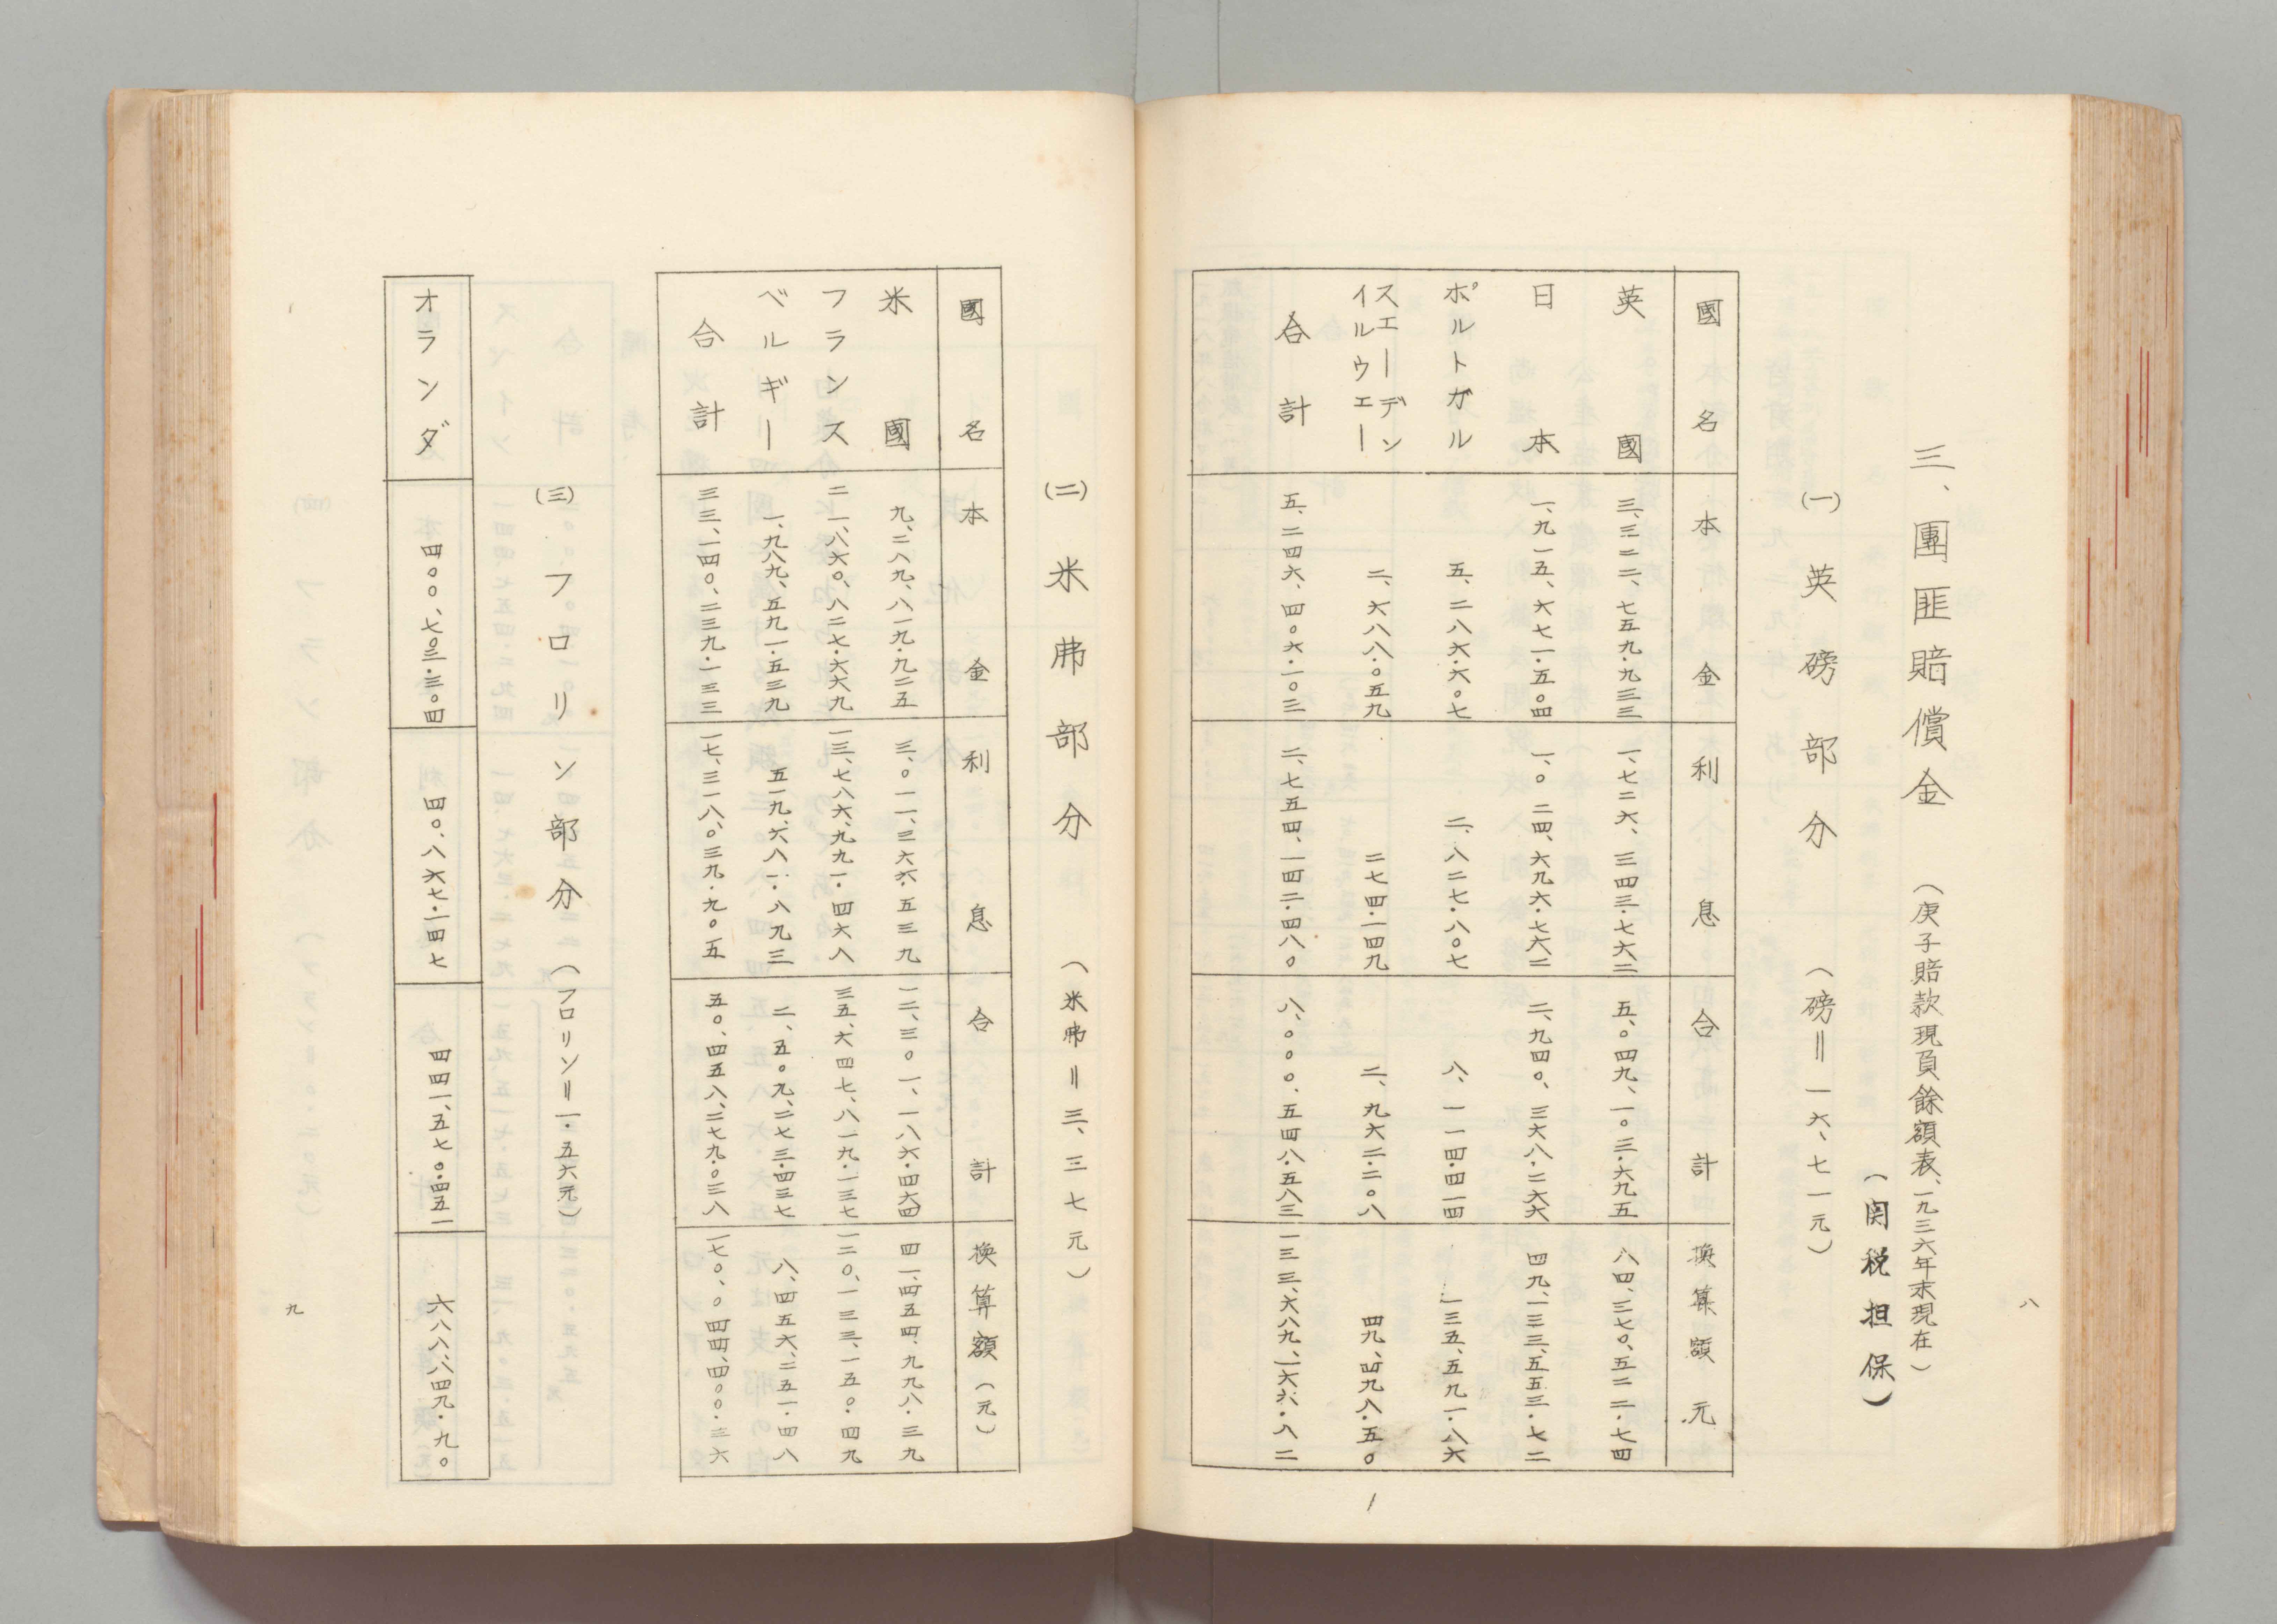 三、團匪賠償金 (庚子賠款現負餘額表、一九三六年末現在)
(関税担保)
(一) 英磅部分 (磅＝一六、七一元)
國名 本金 利息 合計 換算額 元
英國 三、三二二、七五九・九三三 一、七二六、三四三・七六二 五、〇四九、一〇三・六九五 八四、三七〇、五二二・七四
日本 一、九一五、六七一・五〇四 一、〇二四、六九六・七六二 二、九四〇、三六八・二六六 四九、一三三、五五三・七二
ポルトガル 五、二八六・六〇七 二、八二七・八〇七 八、一一四・四一四 一三五、五九一・八六
スエーデン
イルウェー 二、六八八・〇五九 二七四・一四九 二、九六二・二〇八 四九、四九八・五〇
合計 五、二四六、四〇六・一〇三 二、七五四、一四二・四八〇 八、〇〇〇、五四八・五八三 一三三、六八九、一六六・八二
八
(二) 米弗部分 (米弗＝三、三七元)
國名 本金 利息 合計 換算額(元)
米國 九、二八九、八一九・九二五 三、〇一一、三六六・五三九 一二、三〇一、一八六・四六四 四一、四五四、九九八・三九
フランス 二一、八六〇、八二七・六六九 一三、七八六、九九一・四六八 三五、六四七、八一九・一三七 一二〇、一三三、一五〇・四九
ベルギー 一、九八九、五九一・五三九 五一九、六八一・八九三 二、五〇九、二七三・四三七 八、四五六、二五一・四八
合計 三三、一四〇、二三九・一三三 一七、三一八、〇三九・九〇五 五〇、四五八、二七九・〇三八 一七〇、〇四四、四〇〇・三六
(三) フロリン部分 (フロリン＝一・五六元)
オランダ 四〇〇、七〇三・三〇四 四〇、八六七・一四七 四四一、五七〇・四五一 六八八、八四九・九〇
九